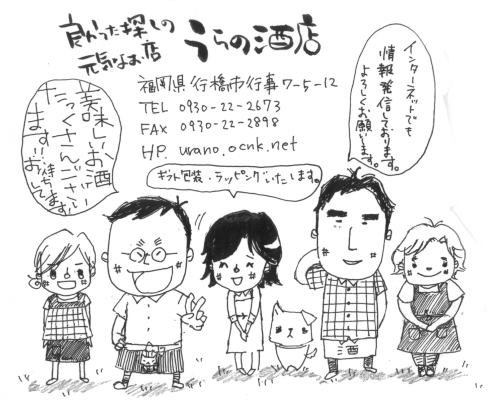 良かった探しの
元気なお店
うらの酒店
福岡県行橋市行事7-5-12
TEL 0930-22-2673
FAX 0930-22-2898
HP. urano.ocnk.net
美味しいお酒が
たっくさんござい
ます!!お待ちして
ます!!
ギフト包装・ラッピングいたします。
インターネットでも
情報発信しております。
よろしくお願います。
酒